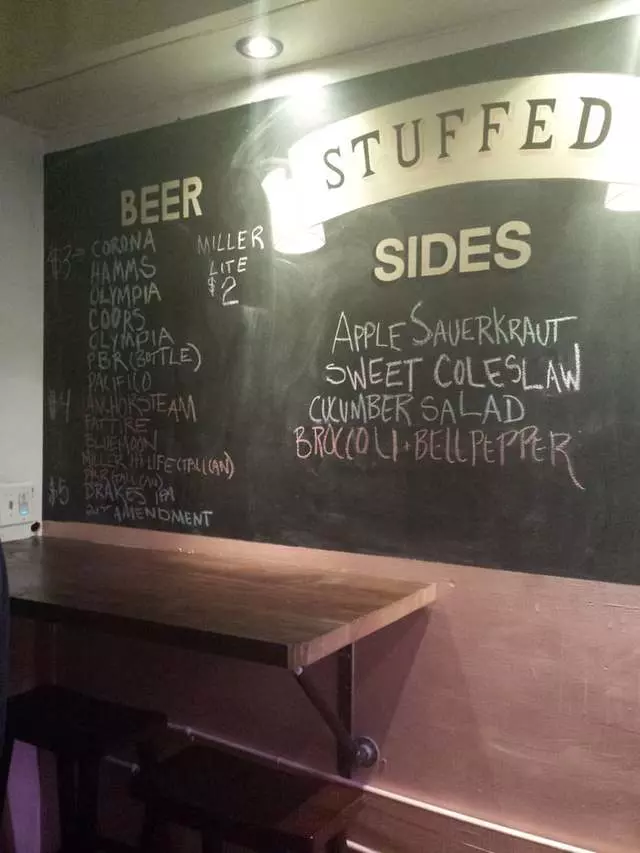 STUFFED
BEER
$3 CORONA
HAMMS
OLYMPIA
COORS
OLYMPIA
PBR (BOTTLE)
PACIFICO
$4 ANCHORSTEAM
FAT TIRE
BLUEMOON
MILLER HI-LIFE (TALL CAN)
PBR (TALL CAN)
$5 DRAKES IPA
21ST AMENDMENT
MILLER
LITE
$2
SIDES
APPLE SAUERKRAUT
SWEET COLESLAW
CUCUMBER SALAD
BROCCOLI + BELLPEPPER